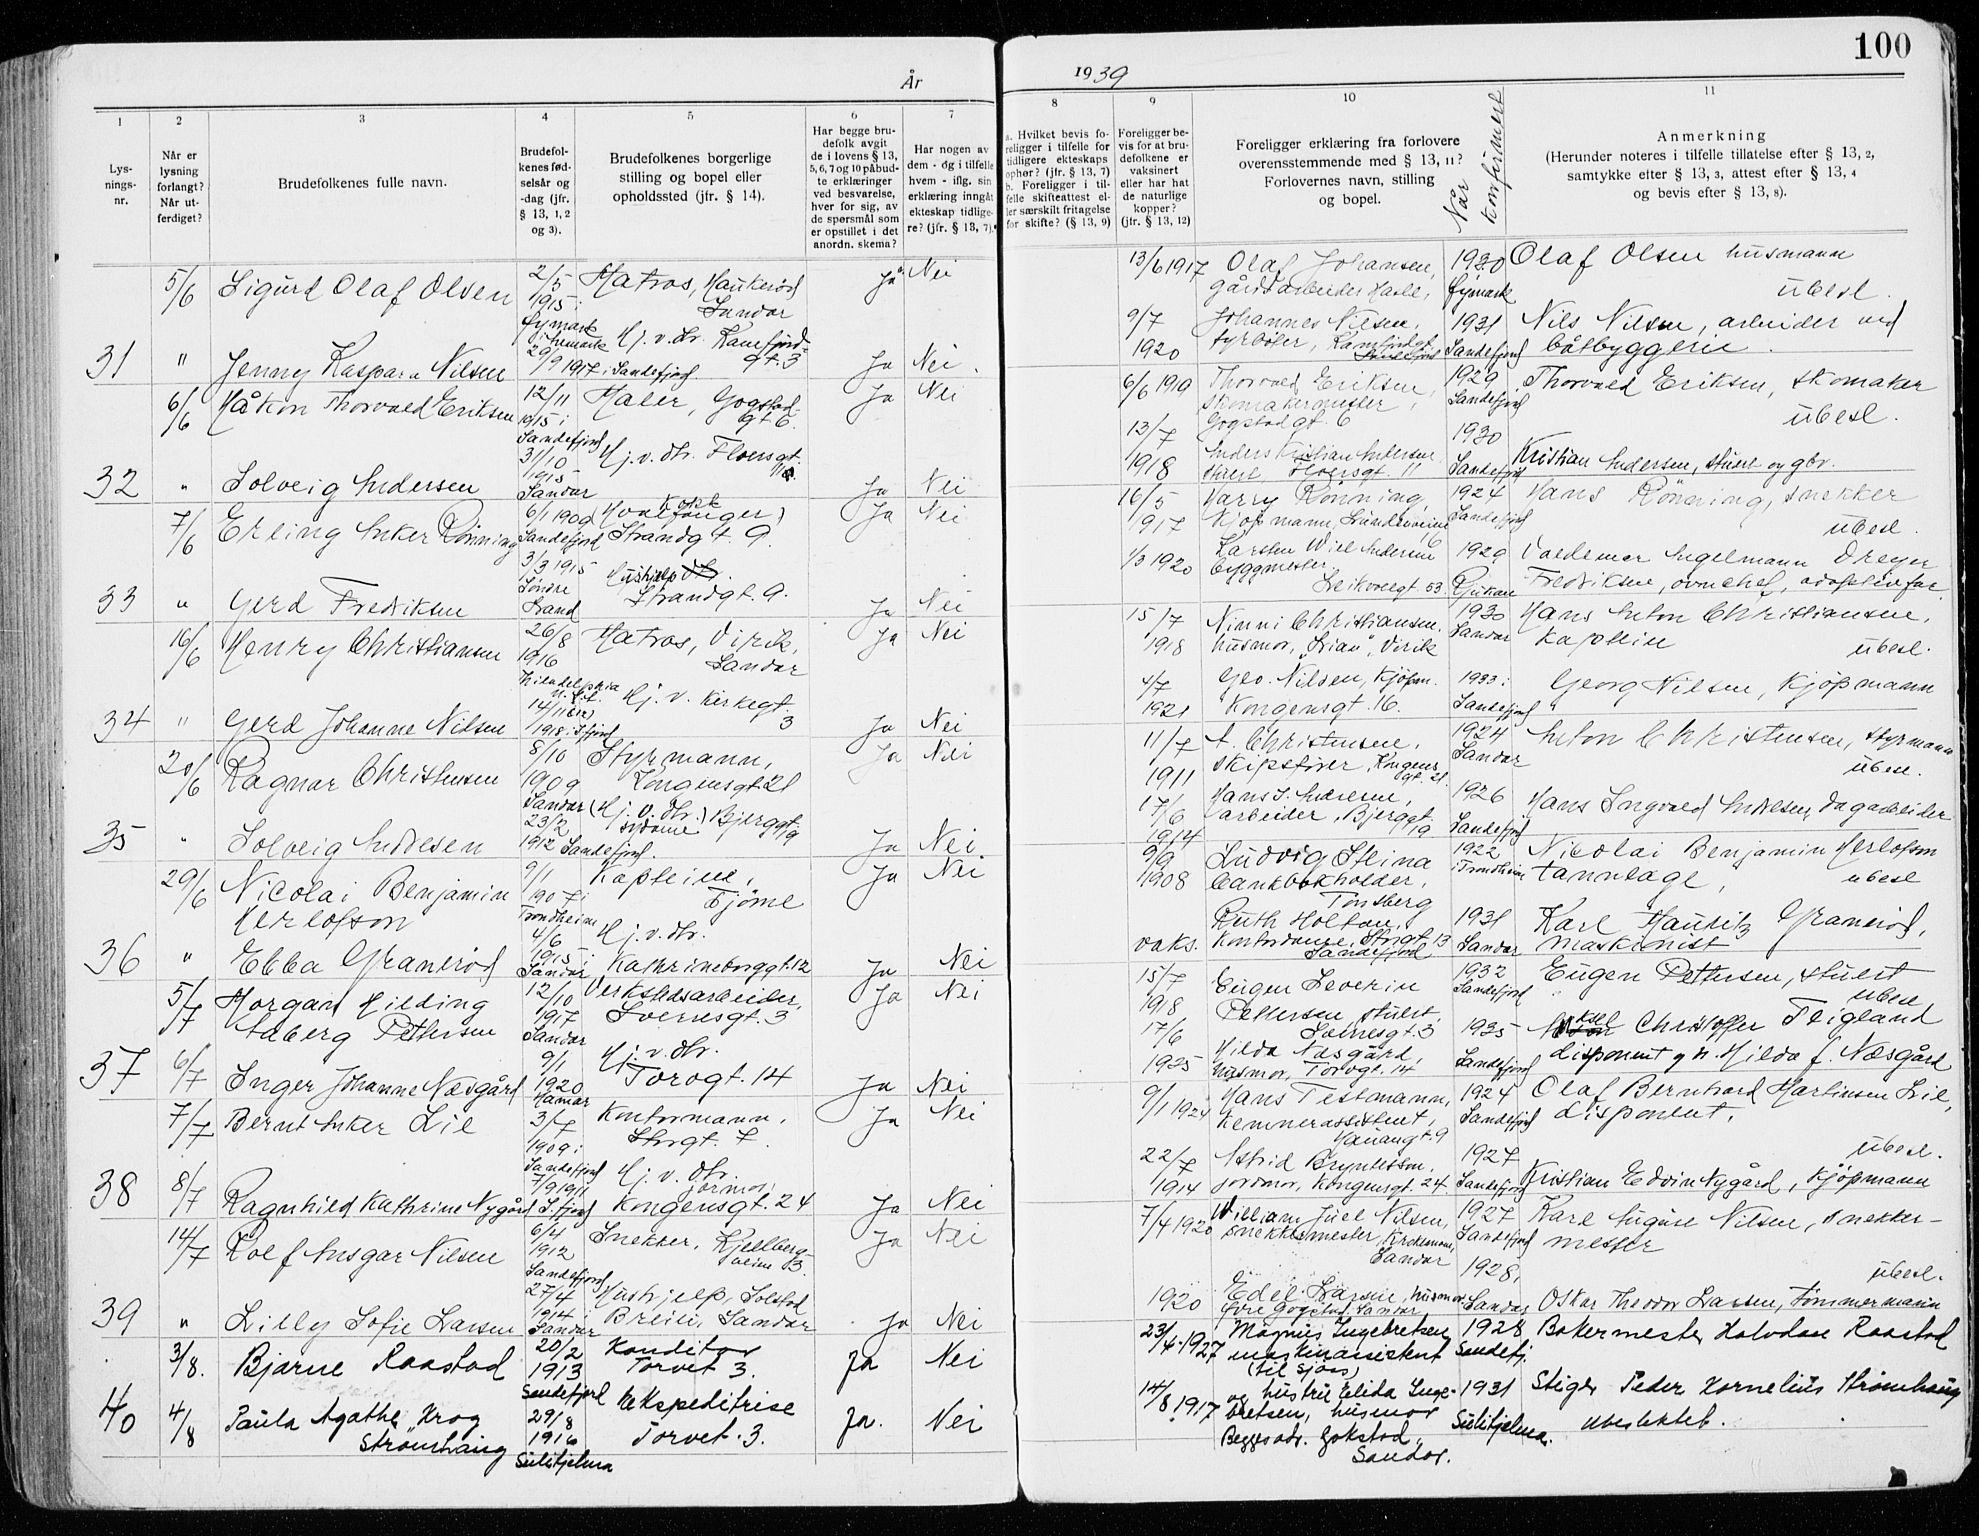 100
År
1939
1
2
3
4
5
6
7
8
9
10
11
Lys-
nings-
nr.
Når er
lysning
forlangt?
Når ut-
ferdiget?
Brudefolkenes fulle navn.
Brudefol-
kenes fød-
selsår og
-dag (jfr.
§ 13, 1, 2
og 3).
Brudefolkenes borgerlige
stilling og bopel eller
opholdssted (jfr. § 14).
Har begge bru-
defolk avgit
de i lovens § 13,
5, 6, 7 og 10 påbud-
te erklæringer
ved besvarelse,
hver for sig, av
de spørsmål som
er opstillet i det
anordn. skema?
Har nogen av
dem - og i tilfelle
hvem - iflg. sin
erklæring inngått
ekteskap tidlige-
re? (jfr. § 13, 7).
a. Hvilket bevis fo-
religger i tilfelle for
tidligere ekteskaps
ophør? (jfr. § 13, 7)
b. Foreligger i til-
felle skifteattest el-
ler særskilt fritagelse
for skifte? (§ 13, 9)
Foreligger be-
vis for at bru-
defolkene er
vaksinert
eller har hat
de naturlige
kopper?
(jfr. § 13, 12)
Foreligger erklæring fra forlovere
overensstemmende med § 13, 11?
Forlovernes navn, stilling
og bopel.
Når konfirmert
Anmerkning
(Herunder noteres i tilfelle tillatelse efter § 13, 2,
samtykke efter § 13, 3, attest efter § 13, 4
og bevis efter § 13, 8).
5/6 Sigurd Olaf Olsen 2/5 1915 i Øymark Matros, Haukerød Sandar Ja Nei
13/6 1917 Olaf Johansen, gårdsarbeider Hasle, 1930 Øymark Olaf Olsen husmann ubesl.
31 " Jenny Kaspara Nilsen 29/9 1917 i Sandefjord Hj. v. dr. Kamfjord- gt. 3 Ja Nei.
9/7 1920 Johannes Nilsen, fyrbøter, Kamfjordgt. Sandefjord 1931 Sandefjord Nils Nilsen, arbeider ved båtbyggeri.
6/6 Håkon Thorvald Eriksen 12/11 1915 i Sandefjord Maler, Gogstad- gt 6. Ja Nei
6/6 1919 Thorvald Eriksen, skomakermester, Gogstadgt. 6 1929 Sandefjord Thorvald Eriksen, skomaker ubesl.
32 " Solveig Andersen 31/10 1915 Sandar Hj. v. dr. Floersgt. 11 Ja Nei
13/7 1918 Anders Kristian Andersen stuert Floersgt. 11 1930 Sandefjord Kristian Andersen, stuert og gbr.
7/6 Erling Anker Rønning 6/1 1909 Sandefjord Hvalfanger, Strandgt. 9. Ja Nei
16/5 1917 Harry Rønning, kjøpmann, Lundeveien 1924 Sandefjord Hans Rønning, snekker ubesl.
33 " Gerd Fredriksen 3/3 1915 Søndre Land Hushjelp Strandgt. 9. Ja Nei
1/3 1920 Karsten Wiel Andersen byggmester, 53 1929 Rjukan Valdemar Ingelmann Dreyer Fredriksen, ovnchef, adoptivfar
16/6 Henry Christiansen 26/8 1916 Philadelphia Matros, Virik, Sandar Ja Nei
15/7 1918 Ninni Christiansen, husmor, Virik 1930 Sandar Hans Anton Christiansen, kaptein ubesl.
34 " Gerd Johanne Nilsen 14/11 1918 i S.fjord Hj. v. Kirkegt. 3 Ja Nei
4/7 1921 Geo. Nilsen, kjøpm. Kongensgt. 16. 1933 i Sandefjord Georg Nilsen, kjøpmann
20/6 Ragnar Christensen 8/10 1909 Sandar Styrmann, Kongensgt 21 Ja Nei
11/7 1911 A. Christensen, skipsfører, Kongens gt. 21 1924 Sandar Anton Christensen, styrmann ubesl.
35 " Solveig Andresen 23/2 1912 Sandefjord. (Hj. v. dr.) sydame Bjerggt. 19 Ja Nei
17/6 1914 Hans I. Andresen, arbeider, Bjerggt. 19 1926 Sandefjord Hans Ingvald Andresen, dagarbeider
29/6 Nicolai Benjamin Herlofson 9/1 1907 i Trondheim Kaptein, Tjøme Ja Nei
9/9 1908 Ludvig Steina bankbokholder, Tønsberg 1922 i Trondheim Nicolai Benjamin Herlofson tannlæge, ubesl
36 " Ebba Granerød 4/6 1915 i Sandar Hj. v. dr. Kathrineborggt. 12 Ja Nei
vaks. Ruth Holtan, kontordame, Storgt. 13 Sandefjord 1931 Sandar Karl Mauritz Granerød, maskinist
5/7 Morgan Hilding Adberg Pettersen 12/10 1917 Sandar Verkstedsarbeider, Sverresgt. 3 Ja Nei
15/7 1918 Eugen Severin Pettersen, stuert, Sverresgt. 3 1932 Sandefjord Eugen Pettersen, stuert ubesl.
37 6/7 Inger Johanne Næsgård 9/1 1920 Hamar Hj. v. dr. Torvgt. 14 Ja Nei
17/6 1925 Hilda Næsgård, husmor, Torvgt. 14 1935 Sandefjord Aksel Christoffer Teigland disponent g. m. Hilda f. Næsgård
7/7 Bernt Anker Lie 3/7 1909 i Sandefjord Kontormann, Storgt. 7. Ja Nei
9/1 1924 Hans Testmann, kemnerassistent, Haugt. 9 1924 Sandefjord Olaf Bernhard Martinsen Lie, disponent. ubesl.
38 8/7 Ragnhild Kathrine Nygård 7/9 1911 S.fjord Hj. v. dr. jormor, Kongensgt. 24 Ja Nei
22/7 1914 Astrid Bryntesen, jordmor, Kongensgt. 24 1927 Sandefjord Kristian Edvin Nygård, kjøpmann
14/7 Rolf Ansgar Nilsen 6/4 1912 Sandefjord Snekker, Kjellberg- veien 13. Ja Nei
7/4 1920 William Juel Nilsen, snekkermester, Sandar 1927 Sandefjord Karl August Nilsen, snekker- mester ubesl.
39 " Lilly Sofie Larsen 27/4 1914 i Sandar Hushjelp, Solstad Breili, Sandar Ja Nei
1920 Edel Larsen, husmor Øvre Gogstad, Sandar 1928, Sandar Oskar Theodor Larsen, tømmermann
3/8. Bjarne Raastad 20/2 1913 Sandefjord Konditor Torvet 3. Ja Nei
23/4 1927 Magnus Ingebretsen maskinassistent (til sjøss) 1928 Sandefj. Bakermester Halvdan Raastad
40 4/8 Paula Agathe Krog Strømhaug 29/8 1916 Sulitjelma Ekspeditrise Torvet 3. Ja. Nei
14/8 1917 og hustru Elida Inge- bretsen, husmor Begges adr. Gokstad, Sandar. 1931 Sulitjelma. Stiger Peder Kornelius Strømhaug ubeslektet.